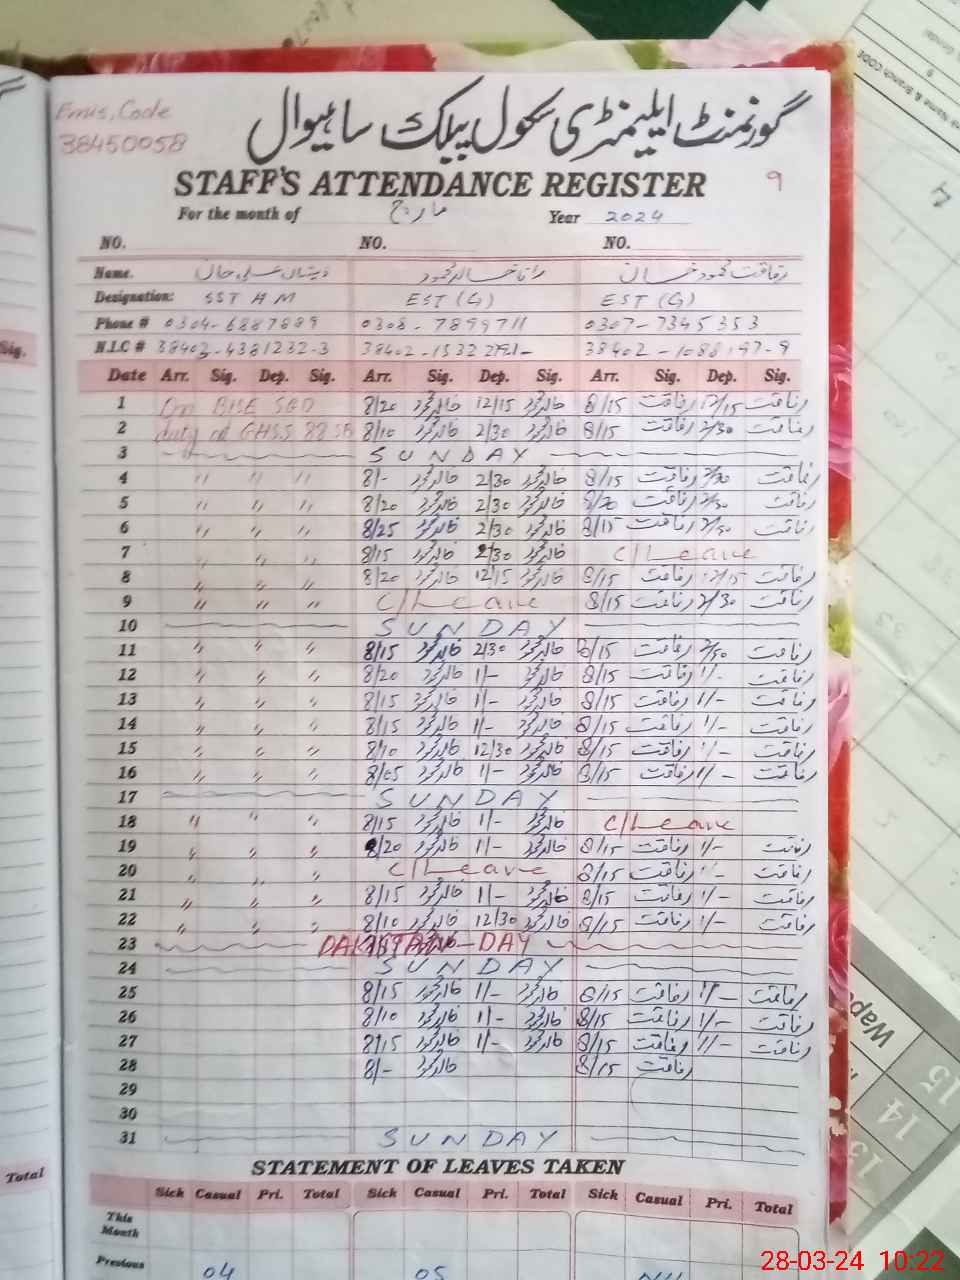 Emis, Code
38450058
گورنمنٹ ایلیمنٹری سکول پبلک ساہیوال
STAFF'S ATTENDANCE REGISTER 9
For the month of مارچ Year 2024
NO. NO. NO.
Name. ذیشان علی خان رانا خالد محمود رفاقت محمود خان
Designation: SST HM EST (G) EST (G)
Phone # 0304-6887889 0308-7899711 0307-7345353
N.I.C # 38403-4381232-3 38402-1532 38402-1088197-9
Date Arr. Sig. Dep. Sig. Arr. Sig. Dep. Sig. Arr. Sig. Dep. Sig.
1 On BISE SGD 8/20 خالد محمود 12/15 خالد محمود 8/15 رفاقت 12/15 رفاقت
2 duty at GHSS 88 SB 8/10 خالد محمود 2/30 خالد محمود 8/15 رفاقت 2/30 رفاقت
3 SUNDAY
4 " " " 8/- خالد محمود 2/30 خالد محمود 8/15 رفاقت 2/30 رفاقت
5 " " " 8/20 خالد محمود 2/30 خالد محمود 8/20 رفاقت 2/30 رفاقت
6 " " " 8/25 خالد محمود 2/30 خالد محمود 8/15 رفاقت 2/30 رفاقت
7 " " " 8/15 خالد محمود 2/30 خالد محمود C/Leave
8 " " " 8/20 خالد محمود 12/15 خالد محمود 8/15 رفاقت 12/15 رفاقت
9 " " " C/Leave 8/15 رفاقت 2/30 رفاقت
10 SUNDAY
11 " " " 8/15 خالد محمود 2/30 خالد محمود 8/15 رفاقت 2/30 رفاقت
12 " " " 8/20 خالد محمود 1/- خالد محمود 8/15 رفاقت 1/- رفاقت
13 " " " 8/15 خالد محمود 1/- خالد محمود 8/15 رفاقت 1/- رفاقت
14 " " " 8/15 خالد محمود 1/- خالد محمود 8/15 رفاقت 1/- رفاقت
15 " " " 8/10 خالد محمود 12/30 خالد محمود 8/15 رفاقت 1/- رفاقت
16 " " " 8/05 خالد محمود 1/- خالد محمود 8/15 رفاقت 1/- رفاقت
17 SUNDAY
18 " " " 8/15 خالد محمود 1/- خالد محمود C/Leave
19 " " " 8/20 خالد محمود 1/- خالد محمود 8/15 رفاقت 1/- رفاقت
20 " " " C/Leave 8/15 رفاقت 1/- رفاقت
21 " " " 8/15 خالد محمود 1/- خالد محمود 8/15 رفاقت 1/- رفاقت
22 " " " 8/10 خالد محمود 12/30 خالد محمود 8/15 رفاقت 1/- رفاقت
23 PAKISTAN DAY
24 SUNDAY
25 8/15 خالد محمود 1/- خالد محمود 8/15 رفاقت 1/- رفاقت
26 8/10 خالد محمود 1/- خالد محمود 8/15 رفاقت 1/- رفاقت
27 8/15 خالد محمود 1/- خالد محمود 8/15 رفاقت 1/- رفاقت
28 8/- خالد محمود 8/15 رفاقت
29
30
31 SUNDAY
STATEMENT OF LEAVES TAKEN
Sick Casual Pri. Total Sick Casual Pri. Total Sick Casual Pri. Total
This Month
Previous 04 05
Sig.
Total
28-03-24 10:22